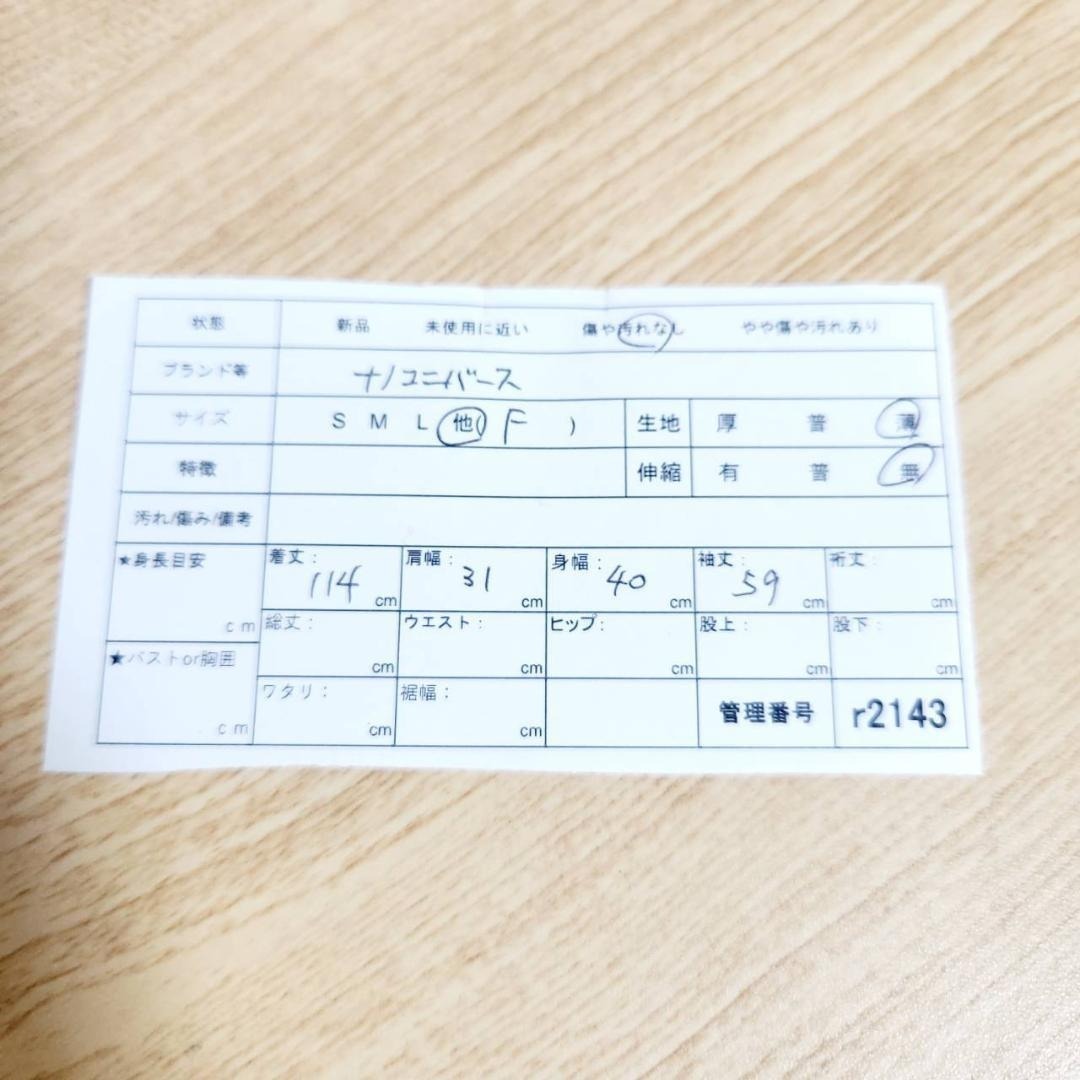 状態 新品 未使用に近い 傷や汚れなし やや傷や汚れあり
ブランド等 ナノユニバース
サイズ S M L 他( F ) 生地 厚 普 薄
特徴 伸縮 有 普 無
汚れ/傷み/備考
★身長目安 cm 着丈: 114 cm 肩幅: 31 cm 身幅: 40 cm 袖丈: 59 cm 裄丈: cm
総丈: cm ウエスト: cm ヒップ: cm 股上: cm 股下: cm
★バストor胸囲 cm ワタリ: cm 裾幅: cm 管理番号 r2143